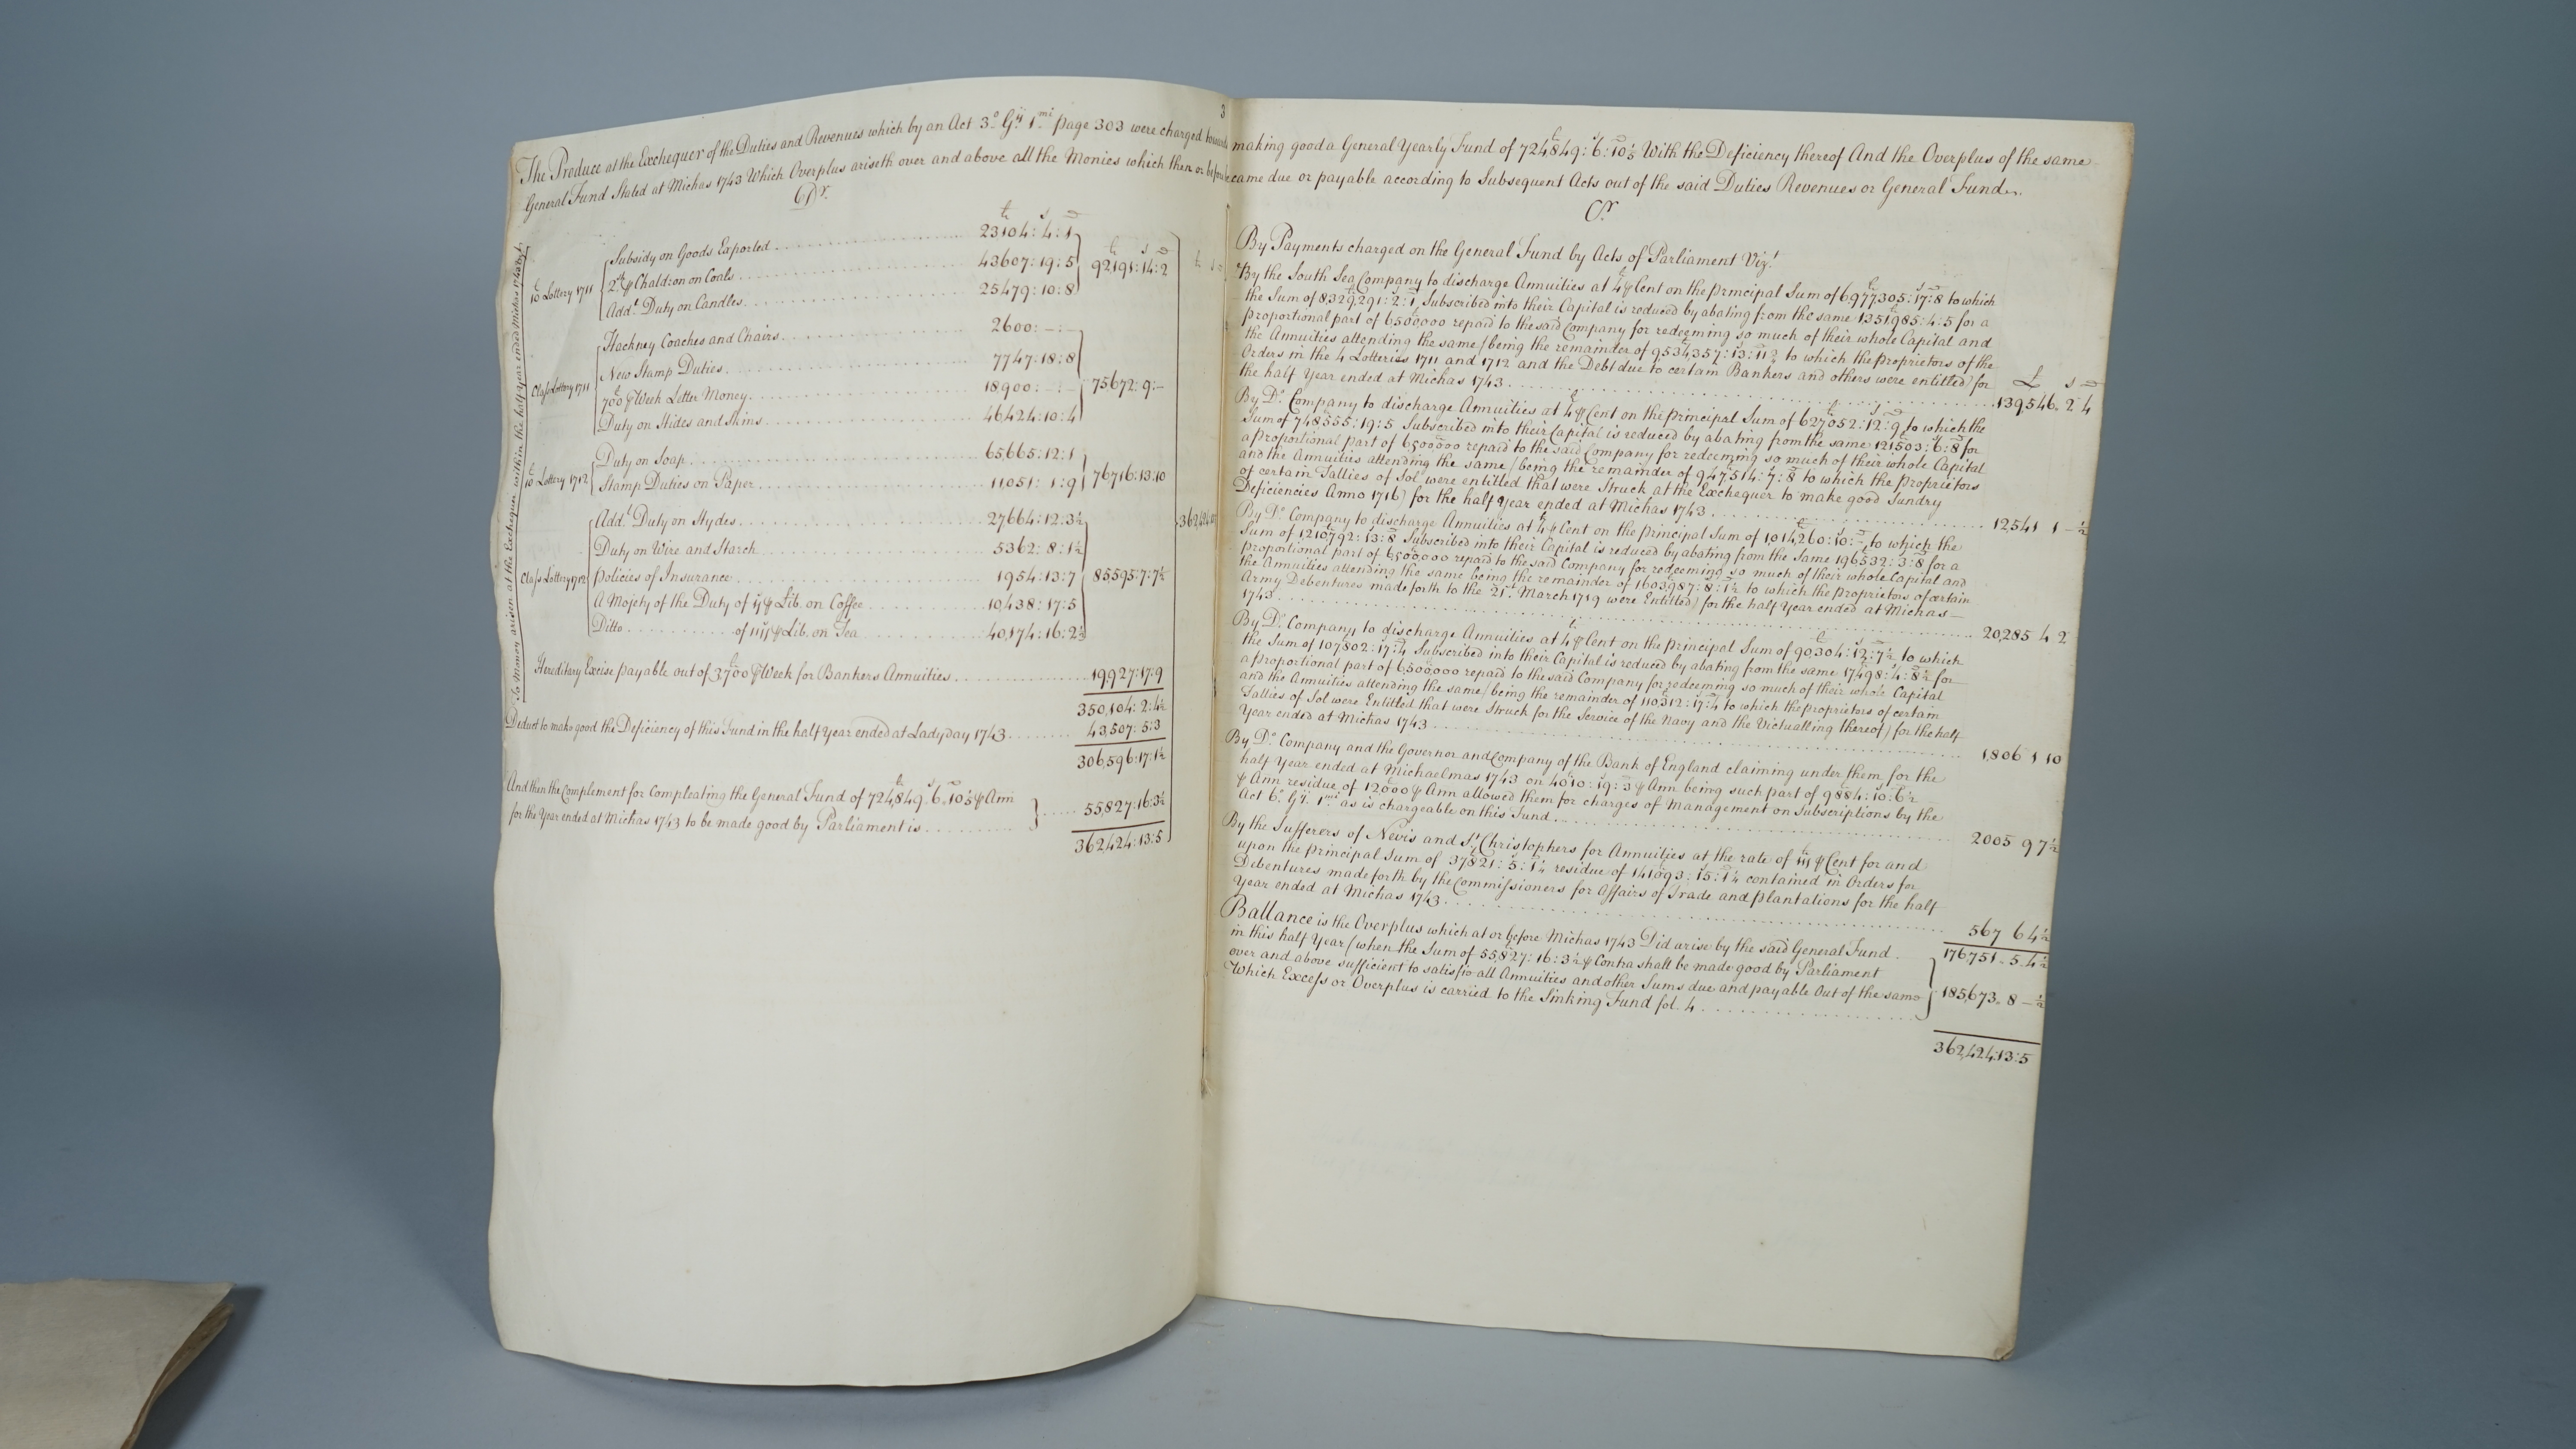 3
The Produce at the Exchequer of the Duties and Revenues which by an Act 3.° G.ii 1.mi page 303 were charged towards
General Fund Stated at Michas 1743 Which Overplus ariseth over and above all the Monies which then or before
Dr.
£ s d
To Money arisen at the Exchequer within the half Year ended Michas 1743 by
10£ Lottery 1711
Subsidy on Goods Exported 23104:4:1
2s. ⅌ Chaldron on Coals 43607:19:5
Add.l Duty on Candles 25479:10:8
£ s d
92191:14:2
£ s d
Class Lottery 1711
Hackney Coaches and Chairs 2600:–:–
New Stamp Duties 7747:18:8
700£ ⅌ Week Letter Money 18900:–:–
Duty on Hides and Skins 46424:10:4
75672:9:–
10£ Lottery 1712
Duty on Soap 65665:12:1
Stamp Duties on Paper 11051:1:9
76716:13:10
Class Lottery 1712
Add.l Duty on Hydes 27664:12:3½
Duty on Wire and Starch 5362:8:1½
Policies of Insurance 1954:13:7
A Mojety of the Duty of ij ⅌ Lib. on Coffee 10438:17:5
Ditto of iiij ⅌ Lib. on Tea 40174:16:2½
85595:7:7½
Hereditary Excise payable out of 3700£ ⅌ Week for Bankers Annuities 19927:17:9
350,104:2:4½
Deduct to make good the Deficiency of this Fund in the half Year ended at Lady day 1743 43,507:5:3
306,596:17:1½
And then the Complement for Compleating the General Fund of 724,849£:6s:10d⅕ ⅌ Ann
for the Year ended at Michas 1743 to be made good by Parliament is 55,827:16:3½
362,424:13:5
making good a General Yearly Fund of 724,849£:6s:10d⅕ With the Deficiency thereof And the Overplus of the same
became due or payable according to Subsequent Acts out of the said Duties Revenues or General Fund.
Cr
By Payments charged on the General Fund by Acts of Parliament Viz.t
By the South Sea Company to discharge Annuities at 4£ ⅌ Cent on the principal Sum of 6977305£:17s:8d to which
the Sum of 8,329,291:2:1, Subscribed into their Capital is reduced by abating from the same 1351985:4:5 for a
proportional part of 6500,000 repaid to the said Company for redeeming so much of their whole Capital and
the Annuities attending the same / being the remainder of 9534357:13:11½ to which the proprietors of the
Orders in the 4 Lotteries 1711 and 1712 and the Debt due to certain Bankers and others were entitled) for
the half Year ended at Michas 1743
£ s d
139546. 2 4
By D.° Company to discharge Annuities at 4£ ⅌ Cent on the principal Sum of 627052£:12s:9d to which the
Sum of 748555:19:5 Subscribed into their Capital is reduced by abating from the same 121503:6:8 for
a proportional part of 6500000 repaid to the said Company for redeeming so much of their whole Capital
and the Annuities attending the same / being the remainder of 947514:7:8 to which the Proprietors
of certain Tallies of Sol were entitled that were Struck at the Exchequer to make good Sundry
Deficiencies Anno 1716) for the half Year ended at Michas 1743 12,541 1 –½
By D.° Company to discharge Annuities at 4£ ⅌ Cent on the principal Sum of 1,014,260£:10s:– to which the
Sum of 1,210792:13:8 Subscribed into their Capital is reduced by abating from the Same 196532:3:8 for a
proportional part of 6,500,000 repaid to the said Company for redeeming so much of their whole Capital and
the Annuities attending the same being the remainder of 1603987:8:1½ to which the Proprietors of certain
Army Debentures made forth to the 21st March 1719 were Entitled) for the half Year ended at Michas
1743 20,285 4 2
By D.° Company to discharge Annuities at 4£ ⅌ Cent on the principal Sum of 90,304£:12s:7½d to which
the Sum of 107802:17:4 Subscribed into their Capital is reduced by abating from the same 17,498:4:8½ for
a proportional part of 6,500,000 repaid to the said Company for redeeming so much of their whole Capital
and the Annuities attending the same / being the remainder of 110,312:17:4 to which the proprietors of certain
Tallies of Sol were Entitled that were Struck for the Service of the Navy and the Victualling thereof) for the half
Year ended at Michas 1743 1,806 1 10
By D.° Company and the Governor and Company of the Bank of England claiming under them for the
half Year ended at Michaelmas 1743 on 4010£:19s:3d ⅌ Ann being such part of 9884:10:6½
⅌ Ann residue of 12000£ ⅌ Ann allowed them for charges of Management on Subscriptions by the
Act 6.° G.ii 1.mi as is chargeable on this Fund 2005 9 7½
By the Sufferers of Nevis and St. Christophers for Annuities at the rate of iij£ ⅌ Cent for and
upon the principal Sum of 37821£:5s:1¼d residue of 141093:15:1¼ contained in Orders for
Debentures made forth by the Commissioners for Affairs of Trade and plantations for the half
Year ended at Michas 1743 567 6 4½
176,751. 5. 4½
Ballance is the Overplus which at or before Michas 1743 Did arise by the said General Fund
in this half Year (when the Sum of 55,827:16:3½ ⅌ Contra shall be made good by Parliament
over and above sufficient to satisfie all Annuities and other Sums due and payable Out of the same
Which Excess or Overplus is carried to the Sinking Fund fol. 4 185,673. 8 –½
362,424:13:5